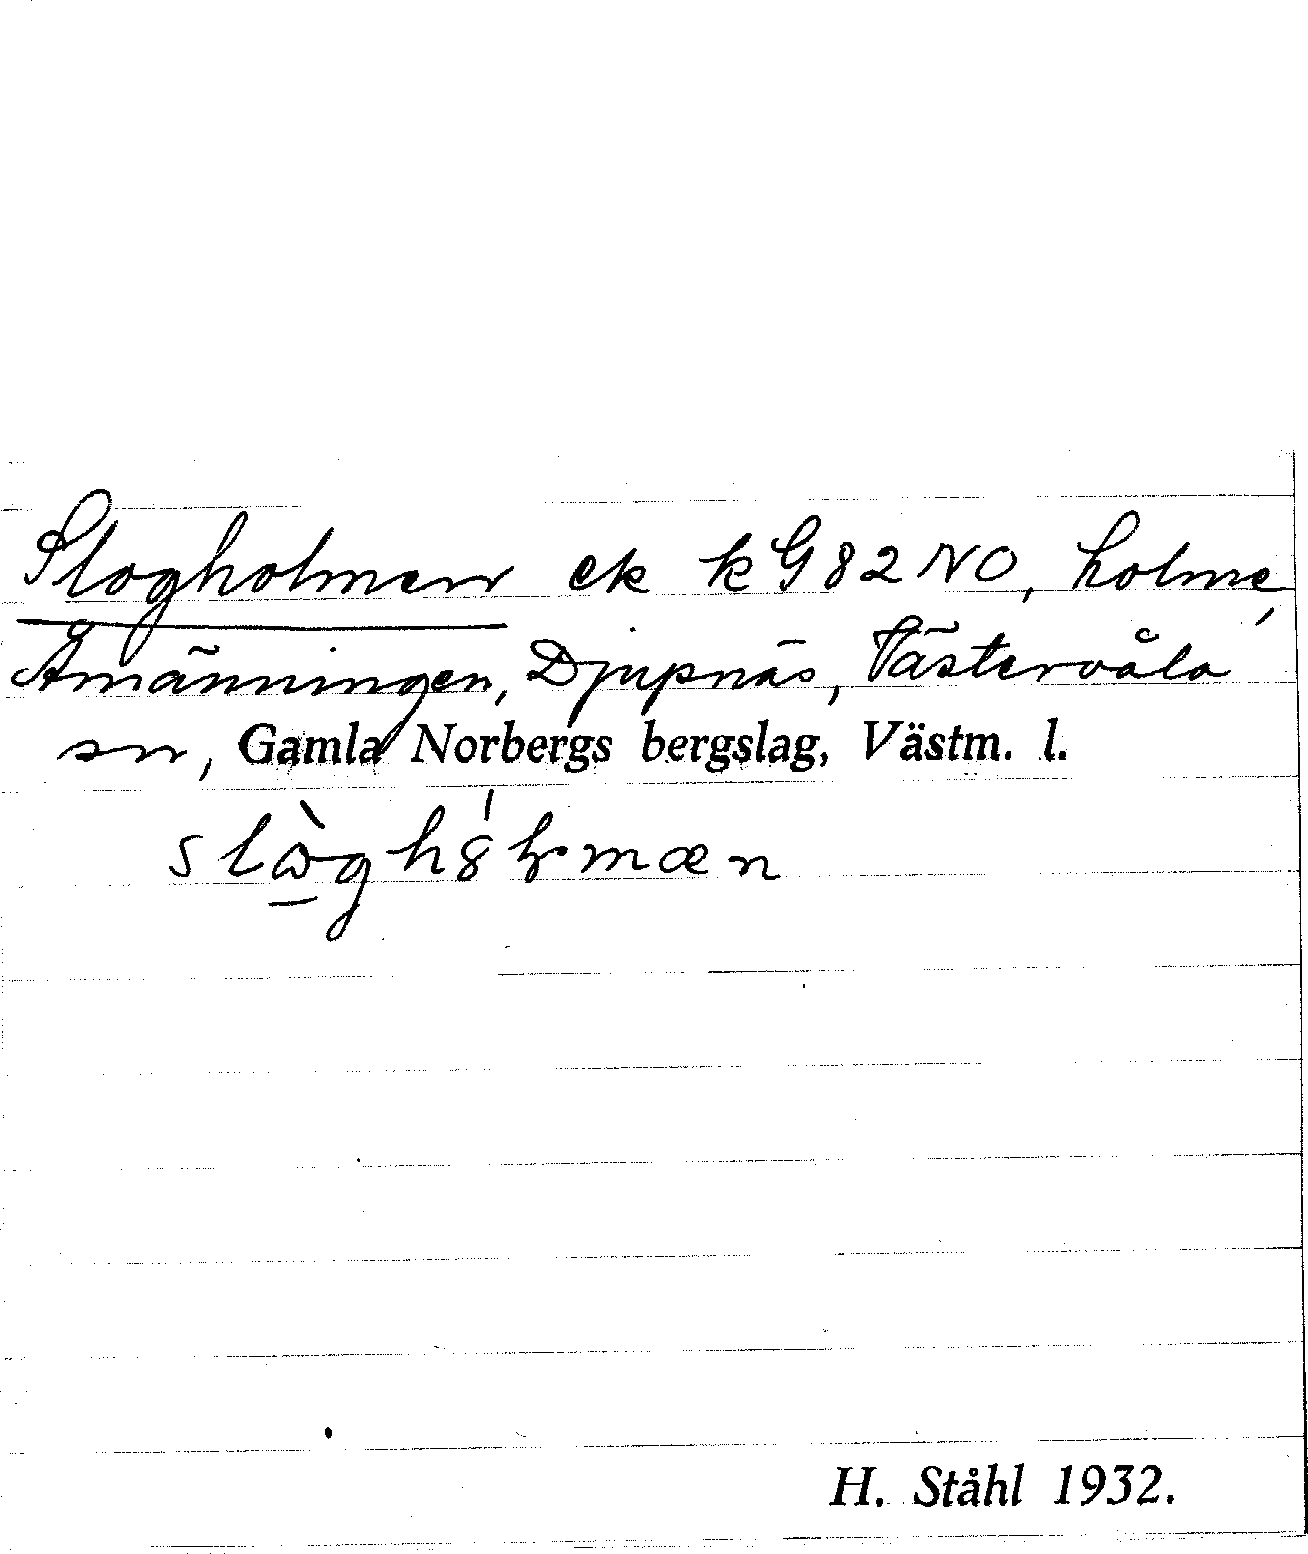 Slogholmen ek k G82 NO, holme,
Åmänningen, Djupnäs, Västervåla
sn, Gamla Norbergs bergslag, Västm. l.
H. Ståhl 1932.